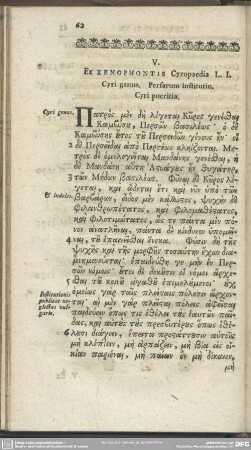 62
V.
Ex XENOPHONTIS Cyropaedia L. I.
Cyri genus. Persarum institutio.
Cyri pueritia.
Cyri genus. Πατρὸς μὲν δὴ λέγεται Κῦρος γενέσθαι
Καμβύσου, Περσῶν βασιλέως· ὁ δὲ
Καμβύσης οὗτος τοῦ Περσειδῶν γένους ἦν· οἱ
2 δὲ Περσεῖδαι ἀπὸ Περσέως κληΐζονται. Μη-
τρὸς δὲ ὁμολογεῖται Μανδάνης γενέσθαι, ἡ
δὲ Μανδάνη αὕτη Ἀστυάγους ἦν θυγάτηρ,
3 τοῦ Μήδων βασιλέως. Φῦναι δὲ Κῦρος λέ-
γεται, καὶ ᾄδεται ἔτι καὶ νῦν ὑπὸ τῶν
& indoles. βαρβάρων, εἶδος μὲν κάλλιστος, ψυχὴν δὲ
φιλανθρωπότατος, καὶ φιλομαθέστατος,
καὶ φιλοτιμότατος, ὥστε πάντα μὲν πό-
νον ἀνατλῆναι, πάντα δὲ κίνδυνον ὑπομεῖ-
4 ναι, τοῦ ἐπαινεῖσθαι ἕνεκα. Φύσιν δὴ τῆς
ψυχῆς καὶ τῆς μορφῆς τοιαύτην ἔχων δια-
μνημονεύεται· ἐπαιδεύθη γε μὴν ἐν Περ-
σῶν νόμοις· οὗτοι δὲ δοκοῦσιν οἱ νόμοι ἄρχε-
σθαι τοῦ κοινοῦ ἀγαθοῦ ἐπιμελούμενοι· οὐχ
Institutionis publicae neglectus vulgaris. 5 ὁμοίως γὰρ ταῖς πλείσταις πόλεσιν ἄρχον-
ται; αἱ μὲν γὰρ πλεῖσται πόλεις ἀφεῖσαι
παιδεύειν ὅπως τις ἐθέλει τοὺς ἑαυτοῦ παῖ-
δας, καὶ αὐτοὺς τοὺς πρεσβυτέρους ὅπως ἐθέ-
6 λουσι διάγειν, ἔπειτα προστάττουσιν αὐτοῖς
μὴ κλέπτειν, μὴ ἁρπάζειν, μὴ βίᾳ εἰς οἰ-
κίαν παριέναι, μὴ παίειν ὃν μὴ δίκαιον,
μὴ